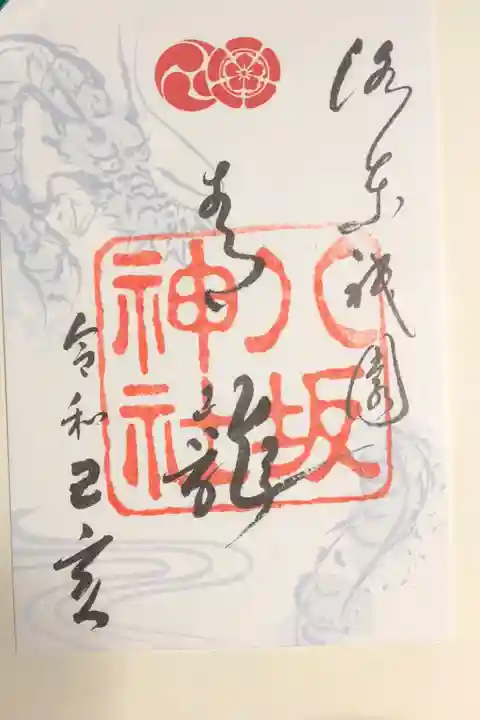 洛東祇園
八坂
神社
青龍
令和己亥